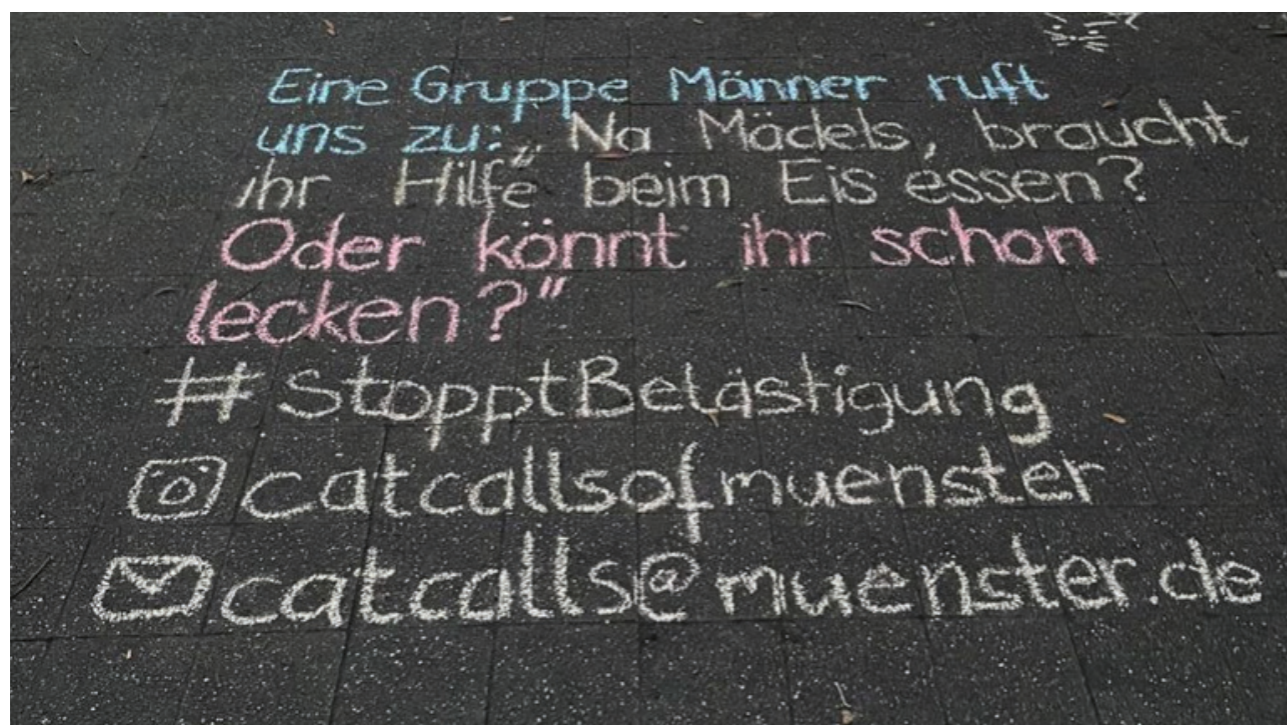 Eine Gruppe Männer ruft
uns zu: „Na Mädels, braucht
ihr Hilfe beim Eis essen?
Oder könnt ihr schon
lecken?“
#StopptBelästigung
catcallsofmuenster
catcalls@muenster.de